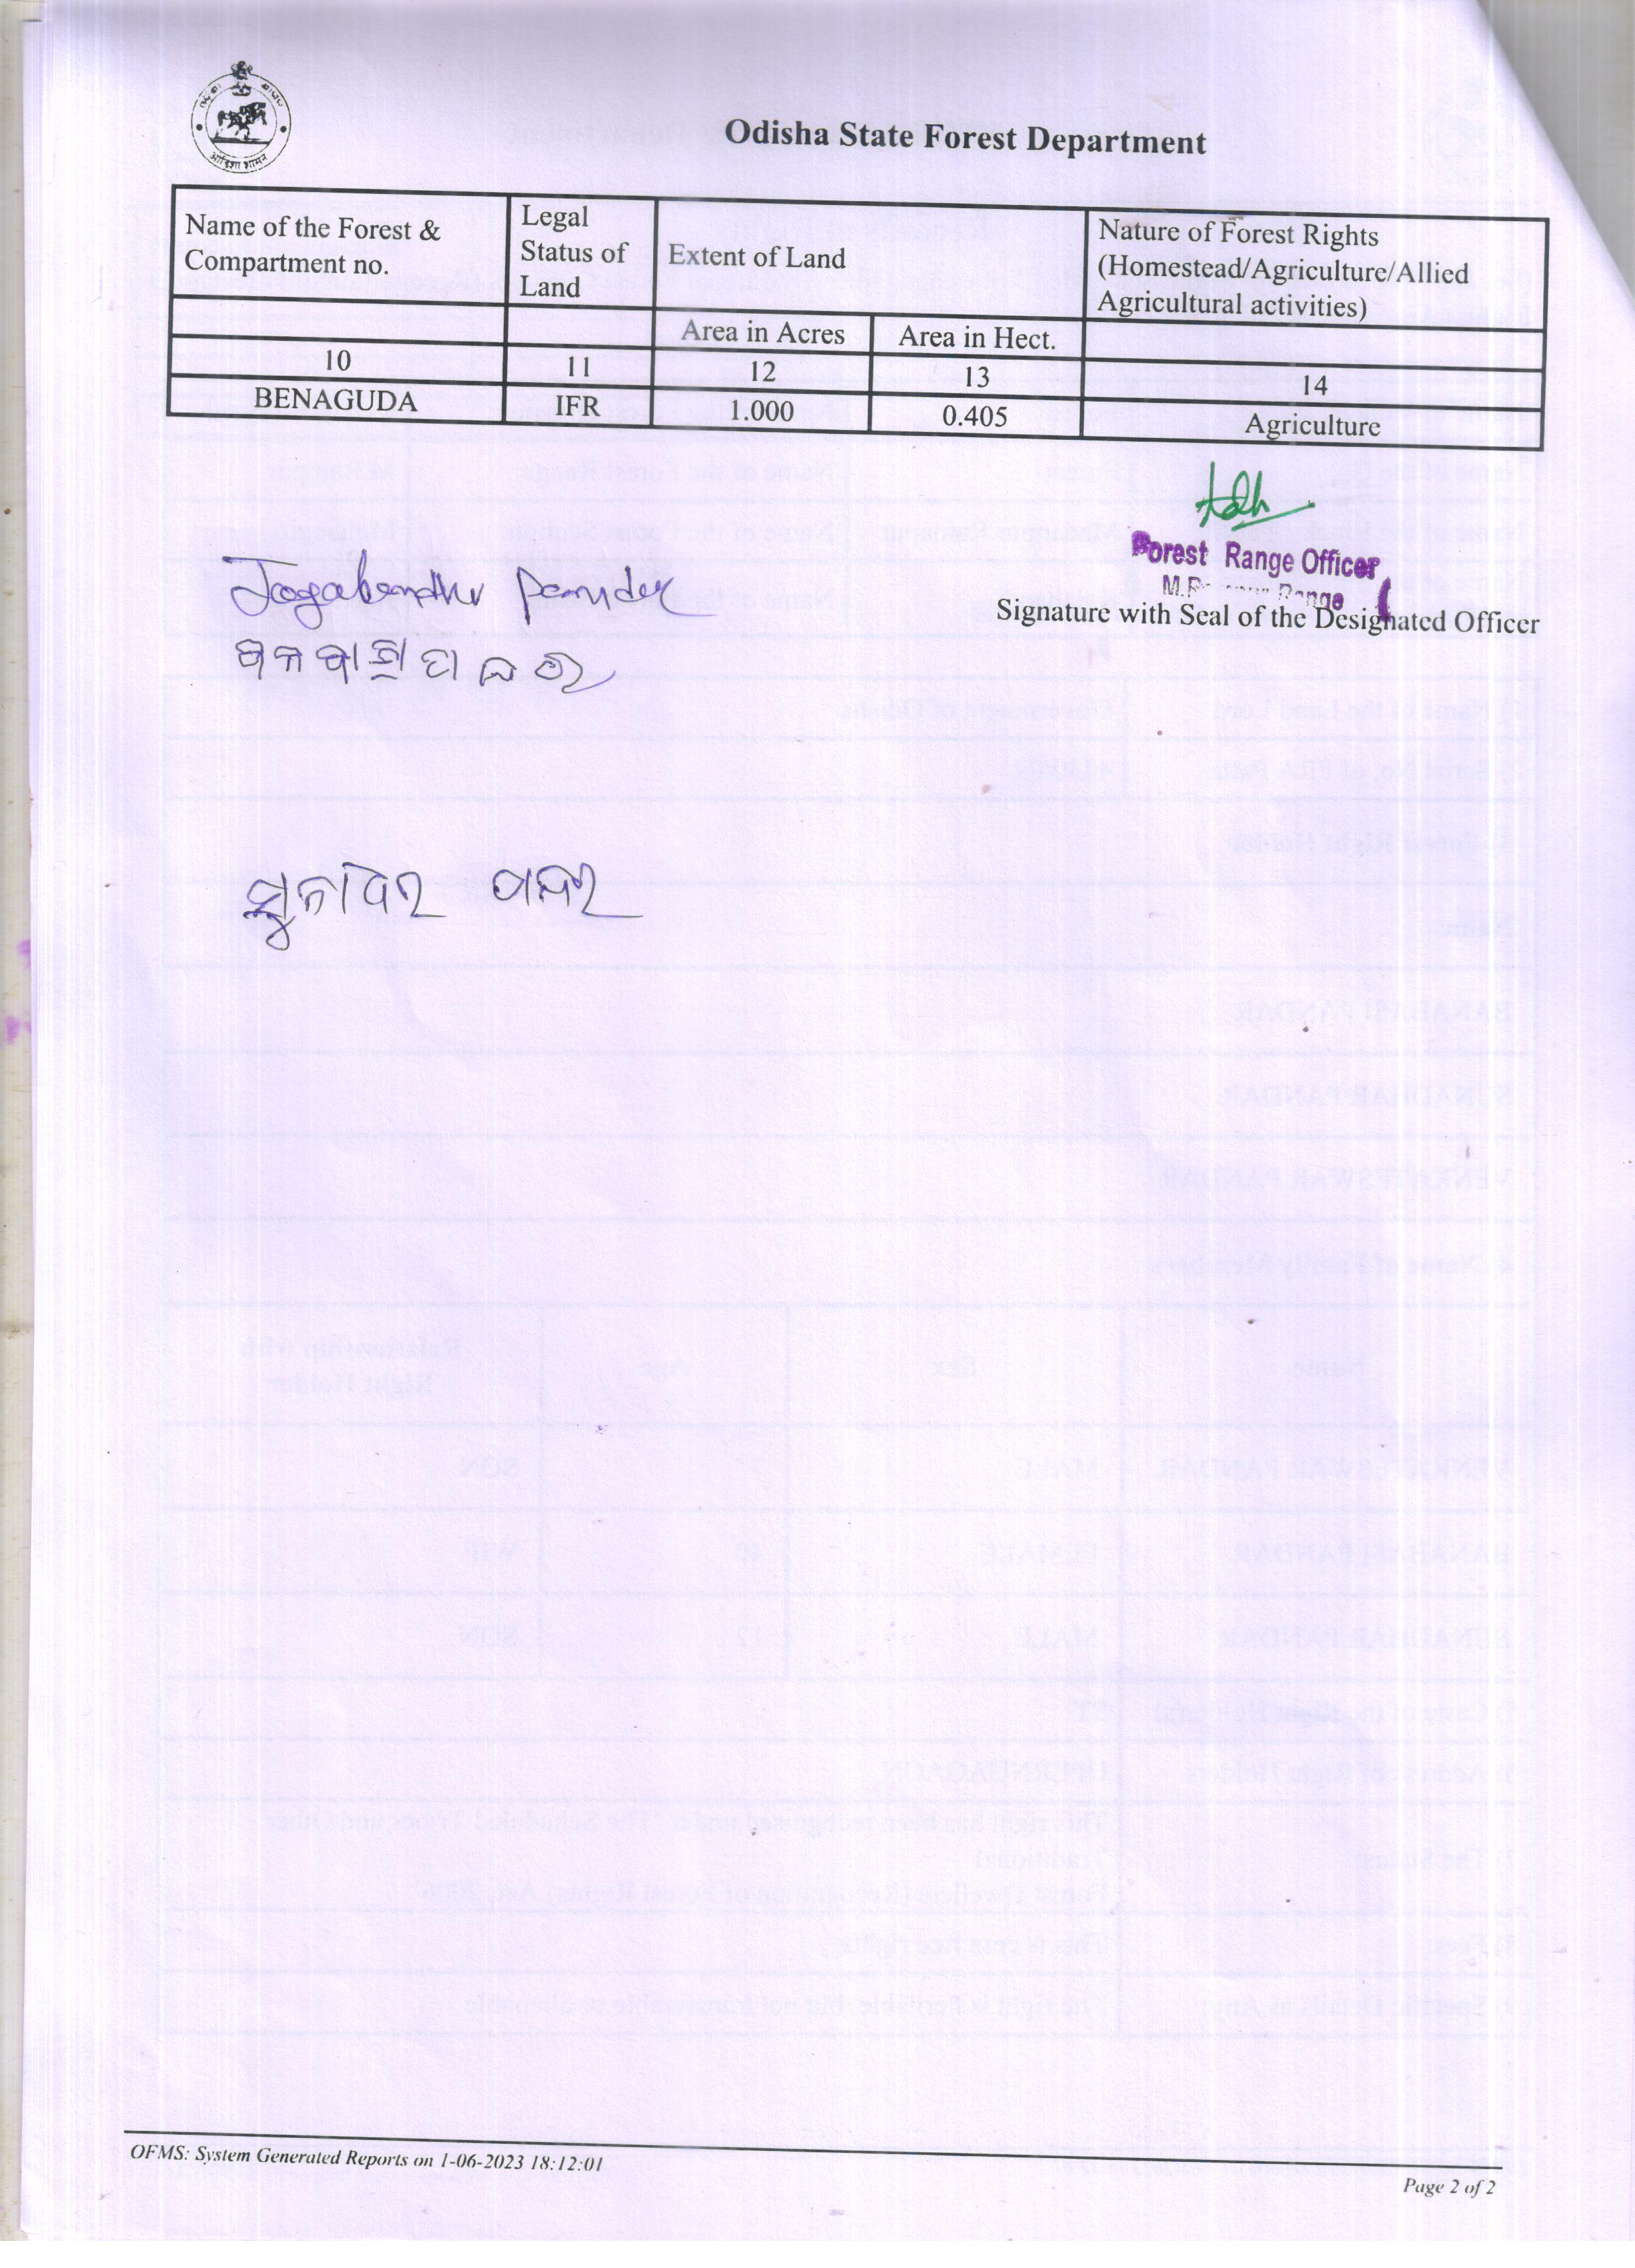 Odisha State Forest Department
Name of the Forest & Compartment no.
Legal Status of Land
Extent of Land
Nature of Forest Rights (Homestead/Agriculture/Allied Agricultural activities)
Area in Acres
Area in Hect.
10
11
12
13
14
BENAGUDA
IFR
1.000
0.405
Agriculture
Forest Range Officer
Range
Signature with Seal of the Designated Officer
Jagabandhu Pander
ସୁନାଧର
OFMS: System Generated Reports on 1-06-2023 18:12:01
Page 2 of 2